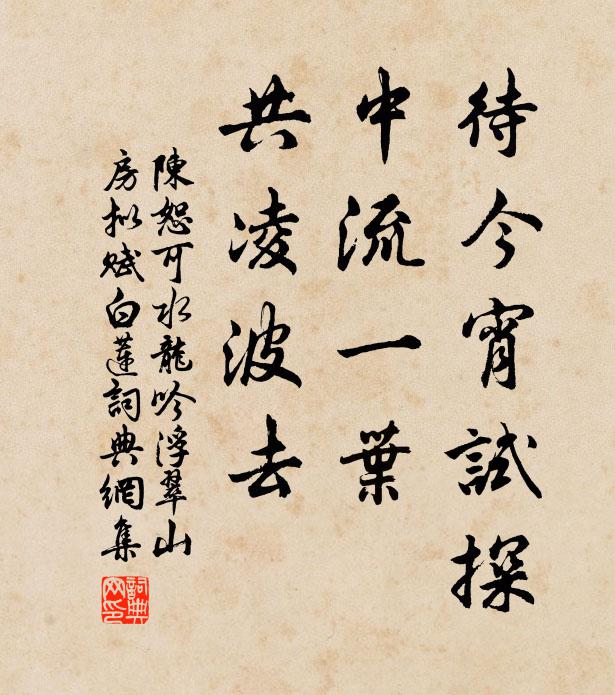 待今宵試探
中流一葉
共凌波去
陳恕可水龍吟浮翠山
房拟賦白蓮詞典網集
詞典
网印